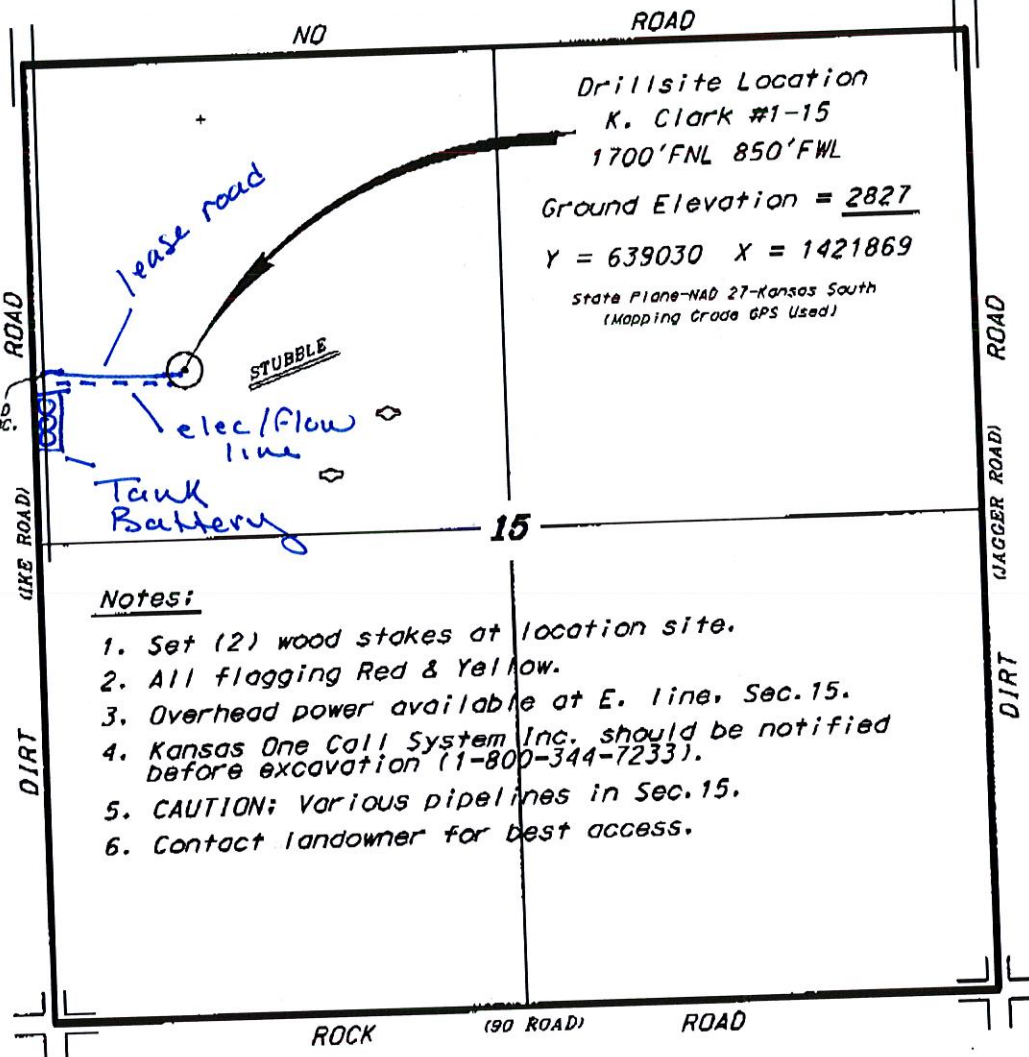 NO ROAD
Drillsite Location
K. Clark #1-15
1700'FNL 850'FWL
Ground Elevation = 2827
Y = 639030 X = 1421869
State Plane-NAD 27-Kansas South
(Mapping Grade GPS Used)
lease road
STUBBLE
elec/flow
line
Tank
Battery
ROAD
(IKE ROAD)
DIRT
ROAD
(JAGGER ROAD)
DIRT
15
Notes:
1. Set (2) wood stakes at location site.
2. All flagging Red & Yellow.
3. Overhead power available at E. line, Sec.15.
4. Kansas One Call System Inc. should be notified
before excavation (1-800-344-7233).
5. CAUTION: Various pipelines in Sec.15.
6. Contact landowner for best access.
ROCK (90 ROAD) ROAD